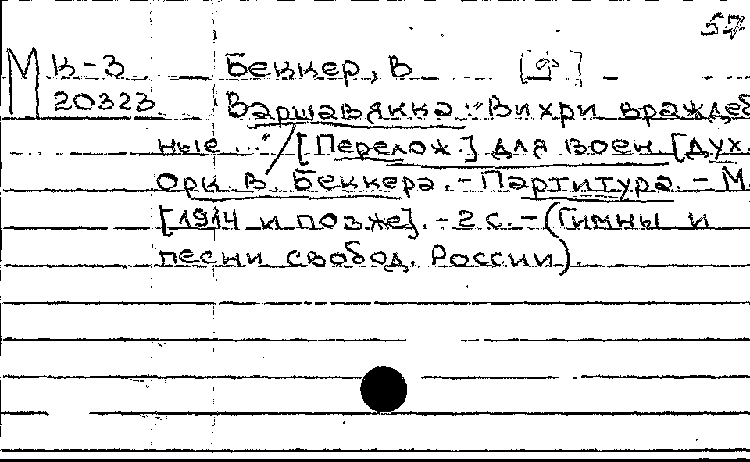 57
М К-3 Беккер, В [Ф]
20323 Варшавянка: "Вихри враждеб
ные..." [Перелож.] для воен. [дух.
орк. В. Беккера. - Партитура. - М.
[1914 и позже]. - 2 с. - (Гимны и
песни свобод. России).